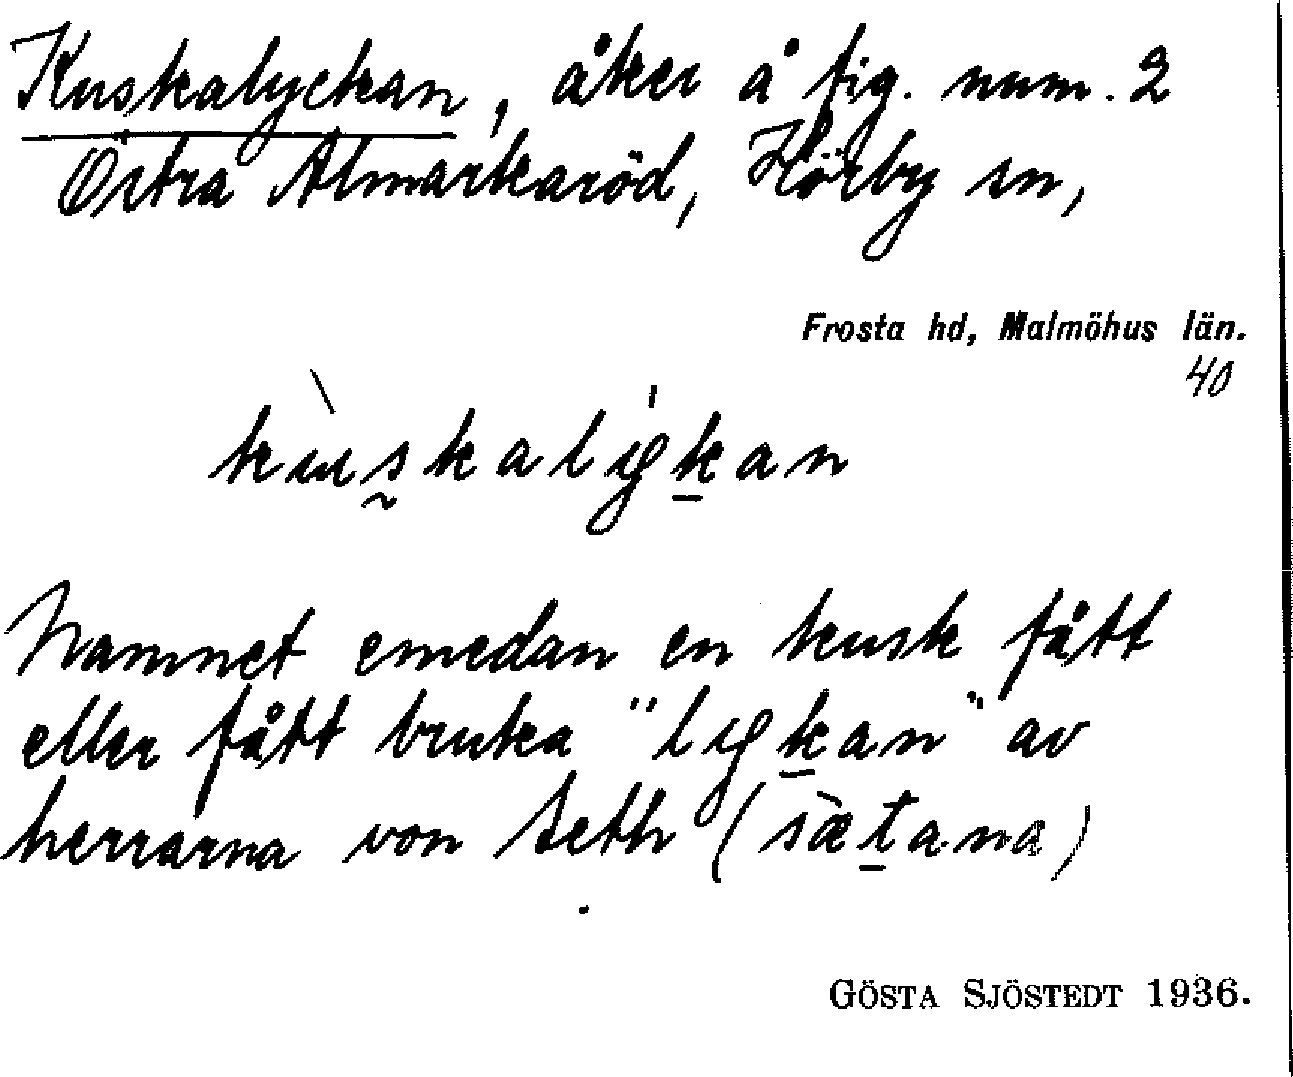 Kuskalyckan, åker å fig. num. 2
Östra Almarkaröd, Hörby sn,
Frosta hd, Malmöhus län.
40
Namnet emedan en kusk fått
eller fått bruka "lykan" av
herrarna von Seth (sætana)
GÖSTA SJÖSTEDT 1936.